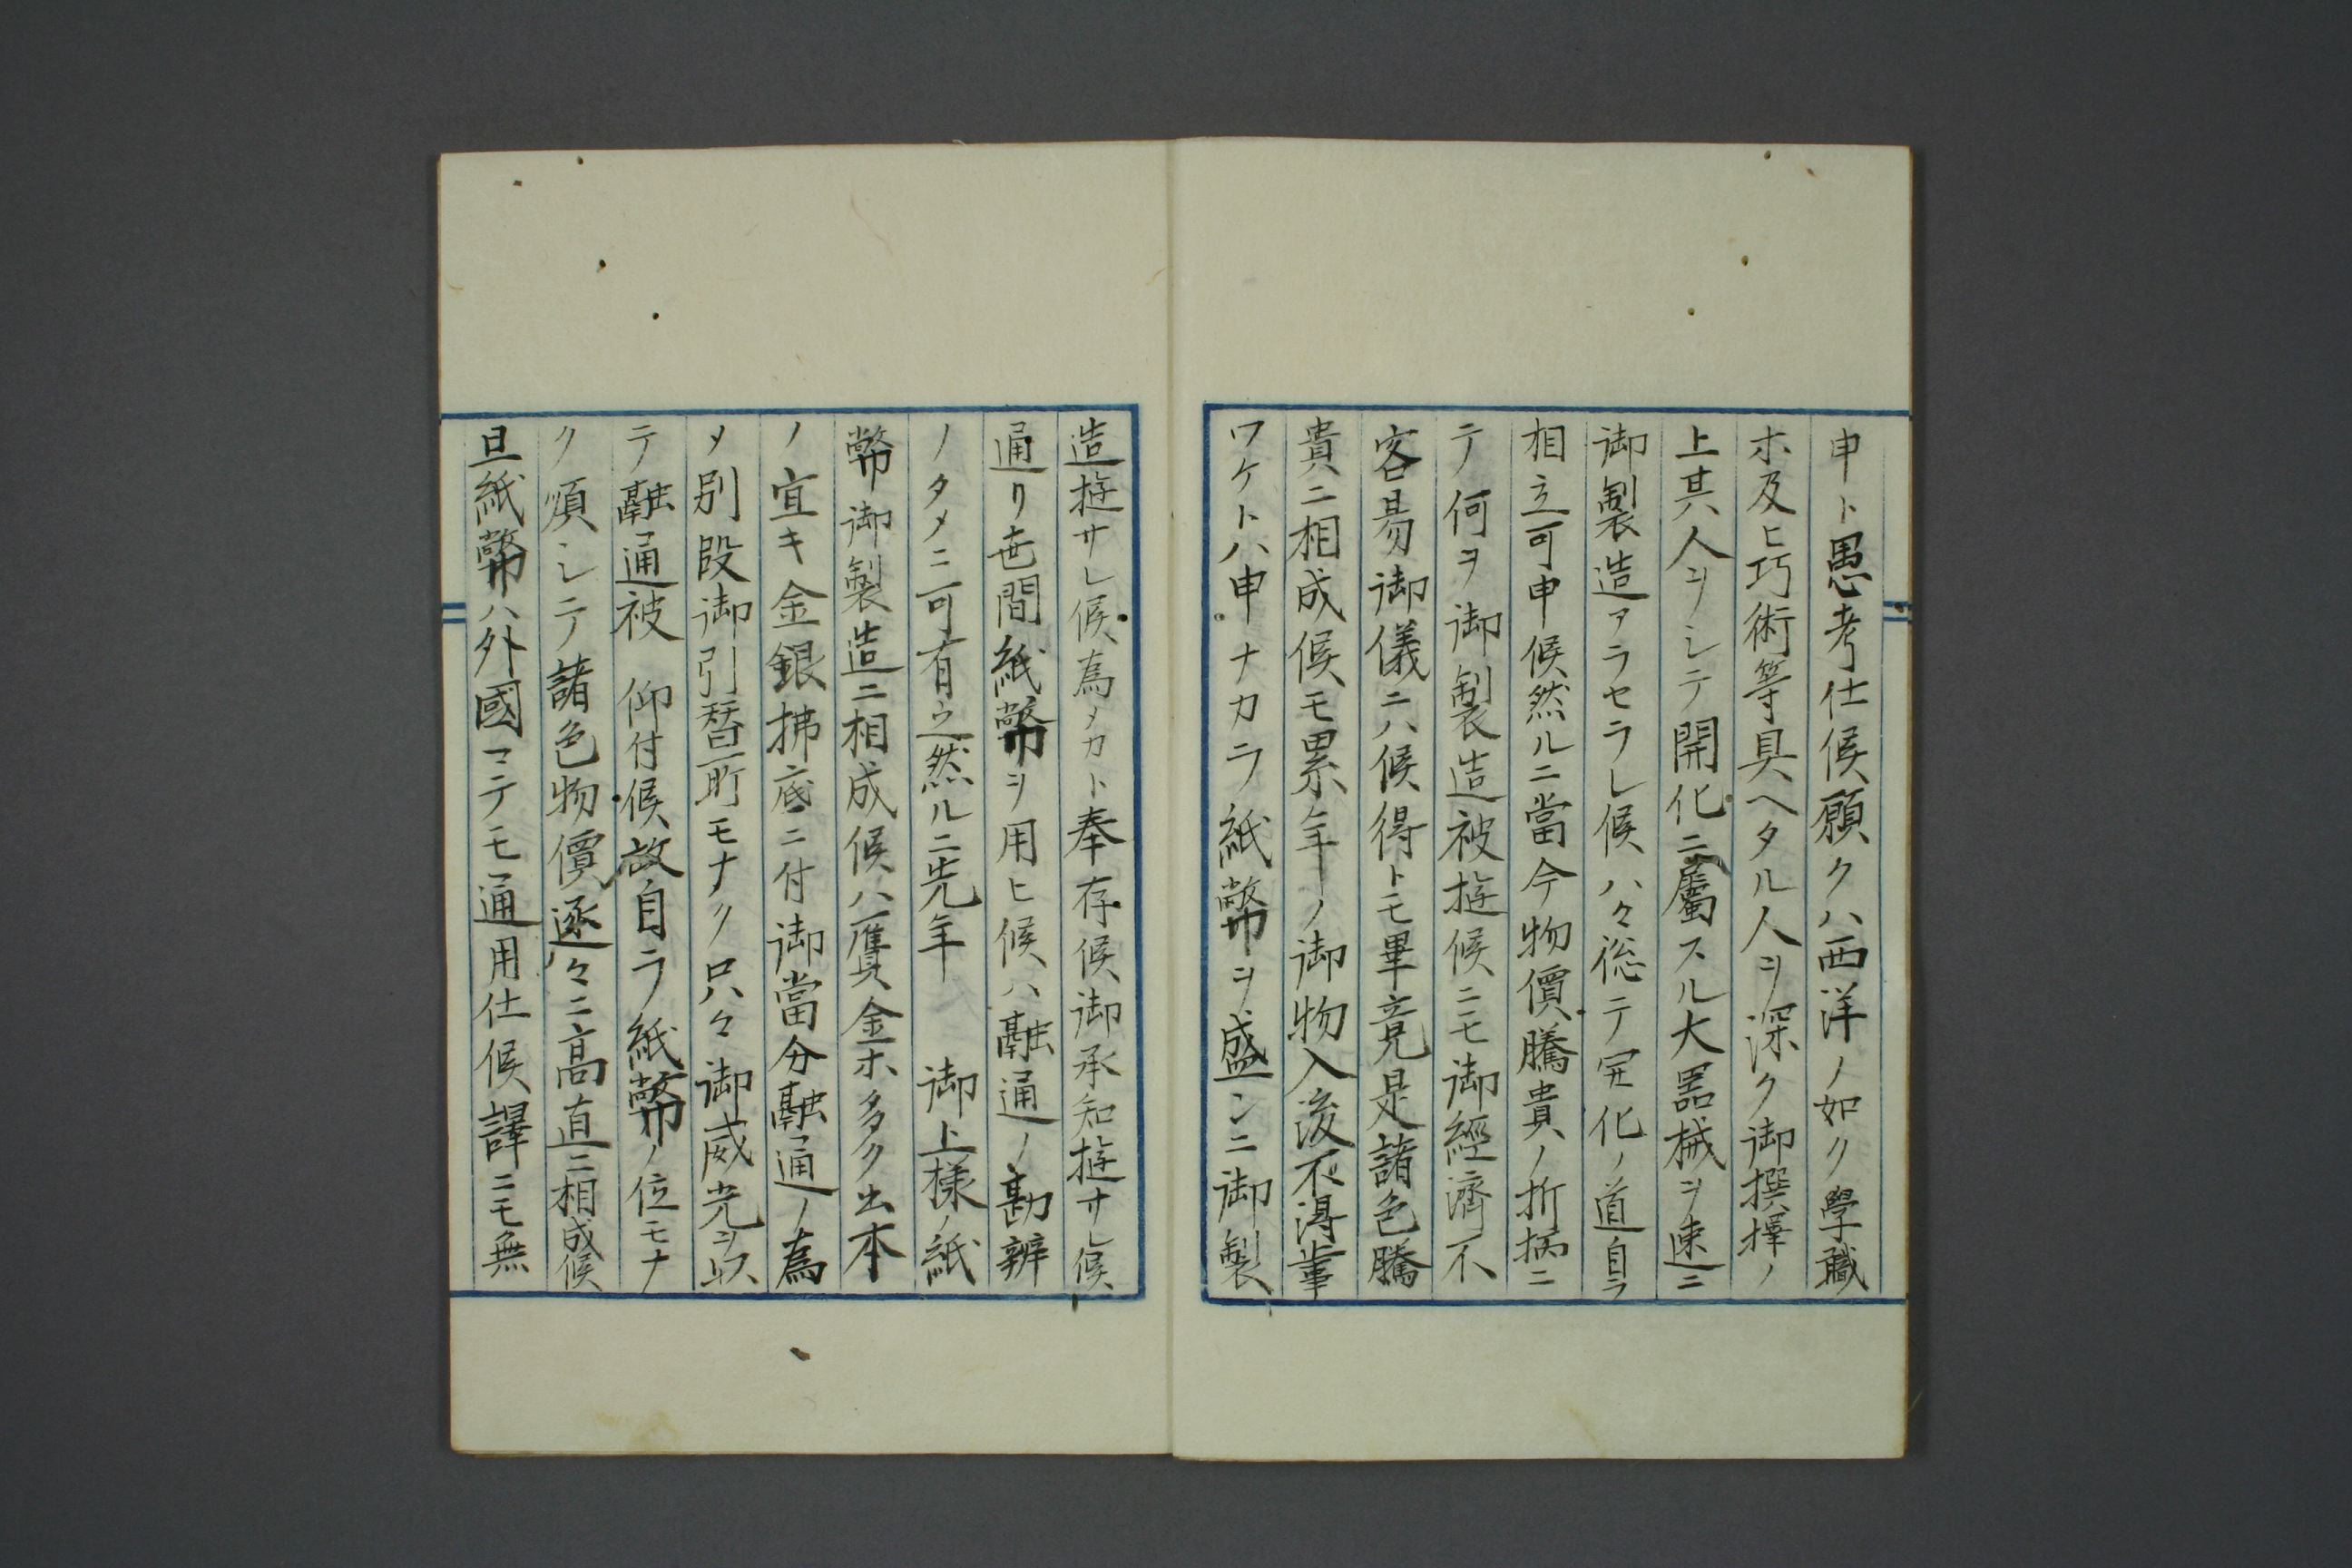 申ト愚考仕候願クハ西洋ノ如ク學職
ホ及ヒ巧術等具ヘタル人ヲ深ク御撰擇ノ
上其人ヲシテ開化ニ屬スル大器械ヲ速ニ
御製造アラセラレ候ハヽ総テ開化ノ道自ラ
相立可申候然ルニ當今物價騰貴ノ折柄ニ
テ何ヲ御製造被遊候ニモ御經濟不
容易御儀ニハ候得トモ畢竟是諸色騰
貴ニ相成候モ累年ノ御物入後不得止事
ワケトハ申ナカラ紙幣ヲ盛ンニ御製
造遊サレ候為メカト奉存候御承知遊サレ候
通リ世間紙幣ヲ用ヒ候ハ融通ノ勘辨
ノタメニ可有之然ルニ先年 御上様ノ紙
幣御製造ニ相成候ハ贋金ホ多ク出本
ノ宜キ金銀拂底ニ付御當分融通ノ為
メ別段御引替町モナク只々御威光ヲ以
テ融通被 仰付候故自ラ紙幣ノ位モナ
ク煩シテ諸色物價逐々ニ高直ニ相成候
且紙幣ハ外國マテモ通用仕候譯ニモ無